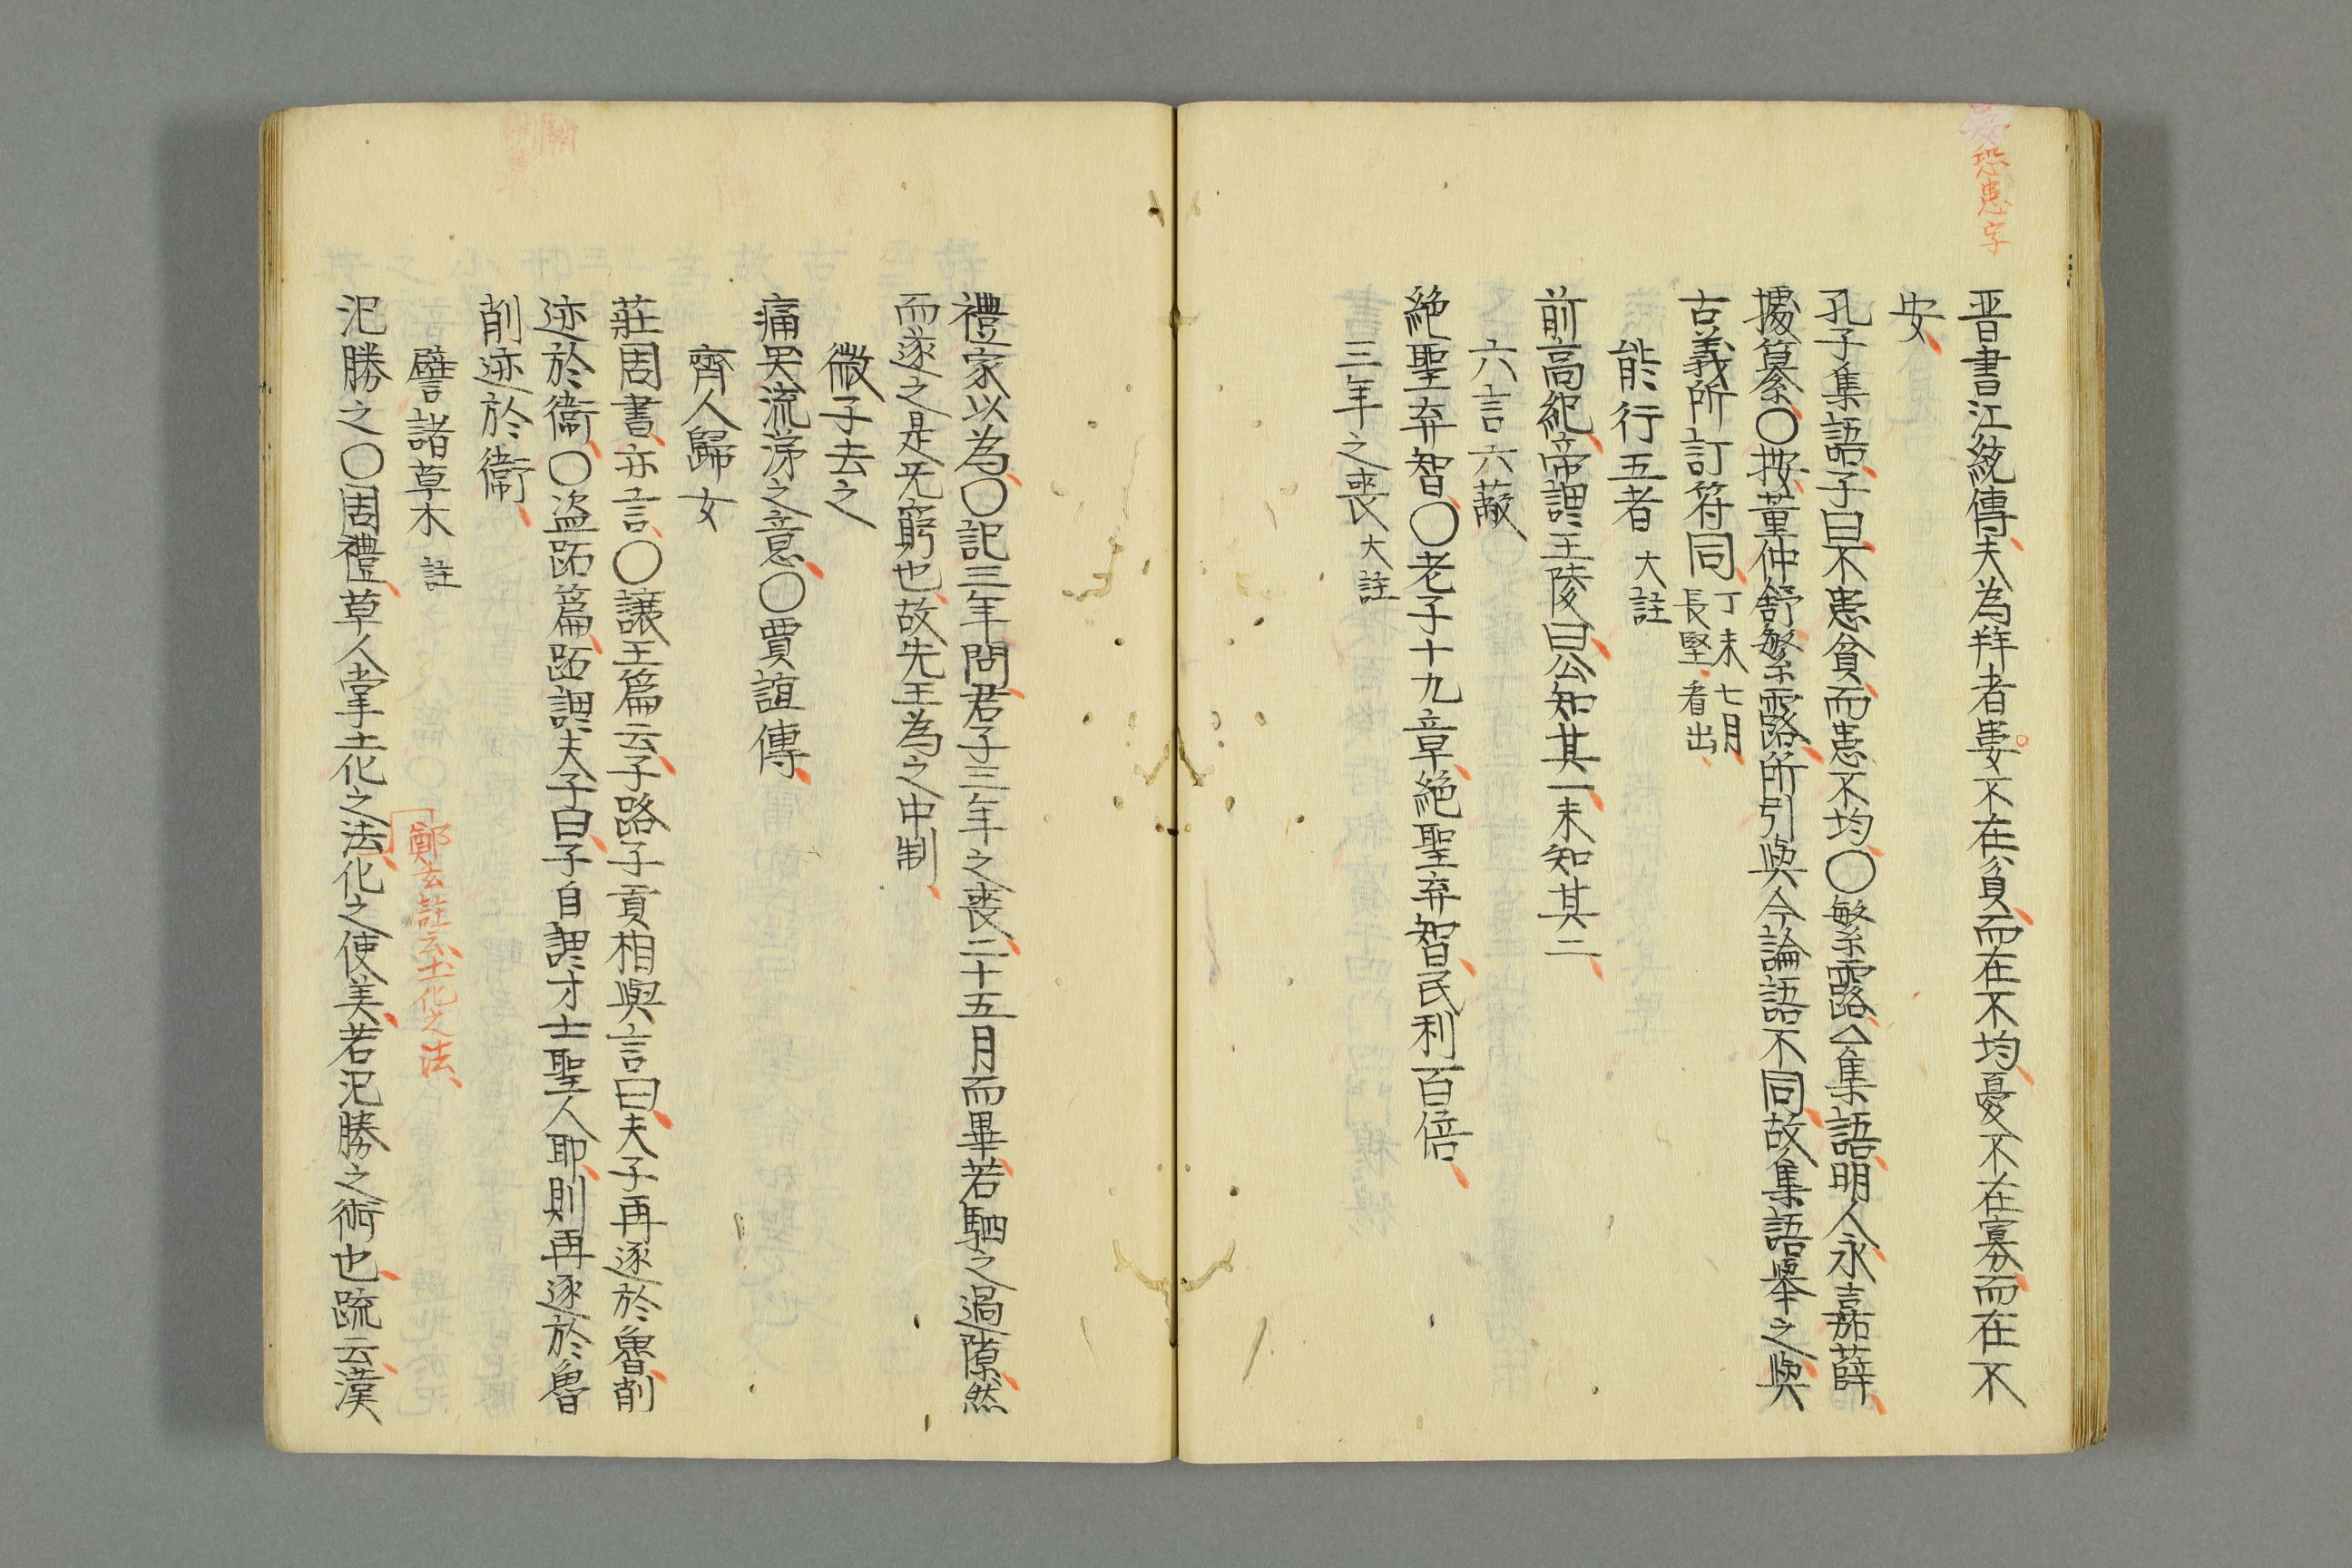 恐患字
晋書江統傳夫為祥者婁不在貧而在不均憂不在寡而在不
安
孔子集語子曰不患貧而患不均〇繁露仝集語明人永嘉薛
據纂〇按董仲舒繁露所引與今論語不同故集語舉之與
古義所訂符同丁未七月
長堅看出
能行五者 大註
前高紀帝謂王陵曰公知其一未知其二
六言六蔽
絶聖弃智〇老子十九章絶聖弃智民利百倍
三年之喪 大註
禮家以為〇記三年問君子三年之喪二十五月而畢若駟之過隙然
而遂之是无窮也故先王為之中制
微子去之
痛哭流涕之意〇賈誼傳
齊人歸女
莊周書亦言〇讓王篇云子路子貢相與言曰夫子再逐於魯削
迹於衞〇盗跖篇跖謂夫子曰子自謂才士聖人耶則再逐於魯
削迹於衞
譬諸草木 註
鄭玄註云土化之法
氾勝之〇周禮草人掌土化之法化之使美若氾勝之術也疏云漢